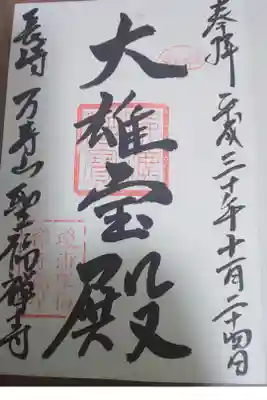 奉拝 平成三十年十一月二十四日
大雄宝殿
長崎 万寿山聖福禅寺